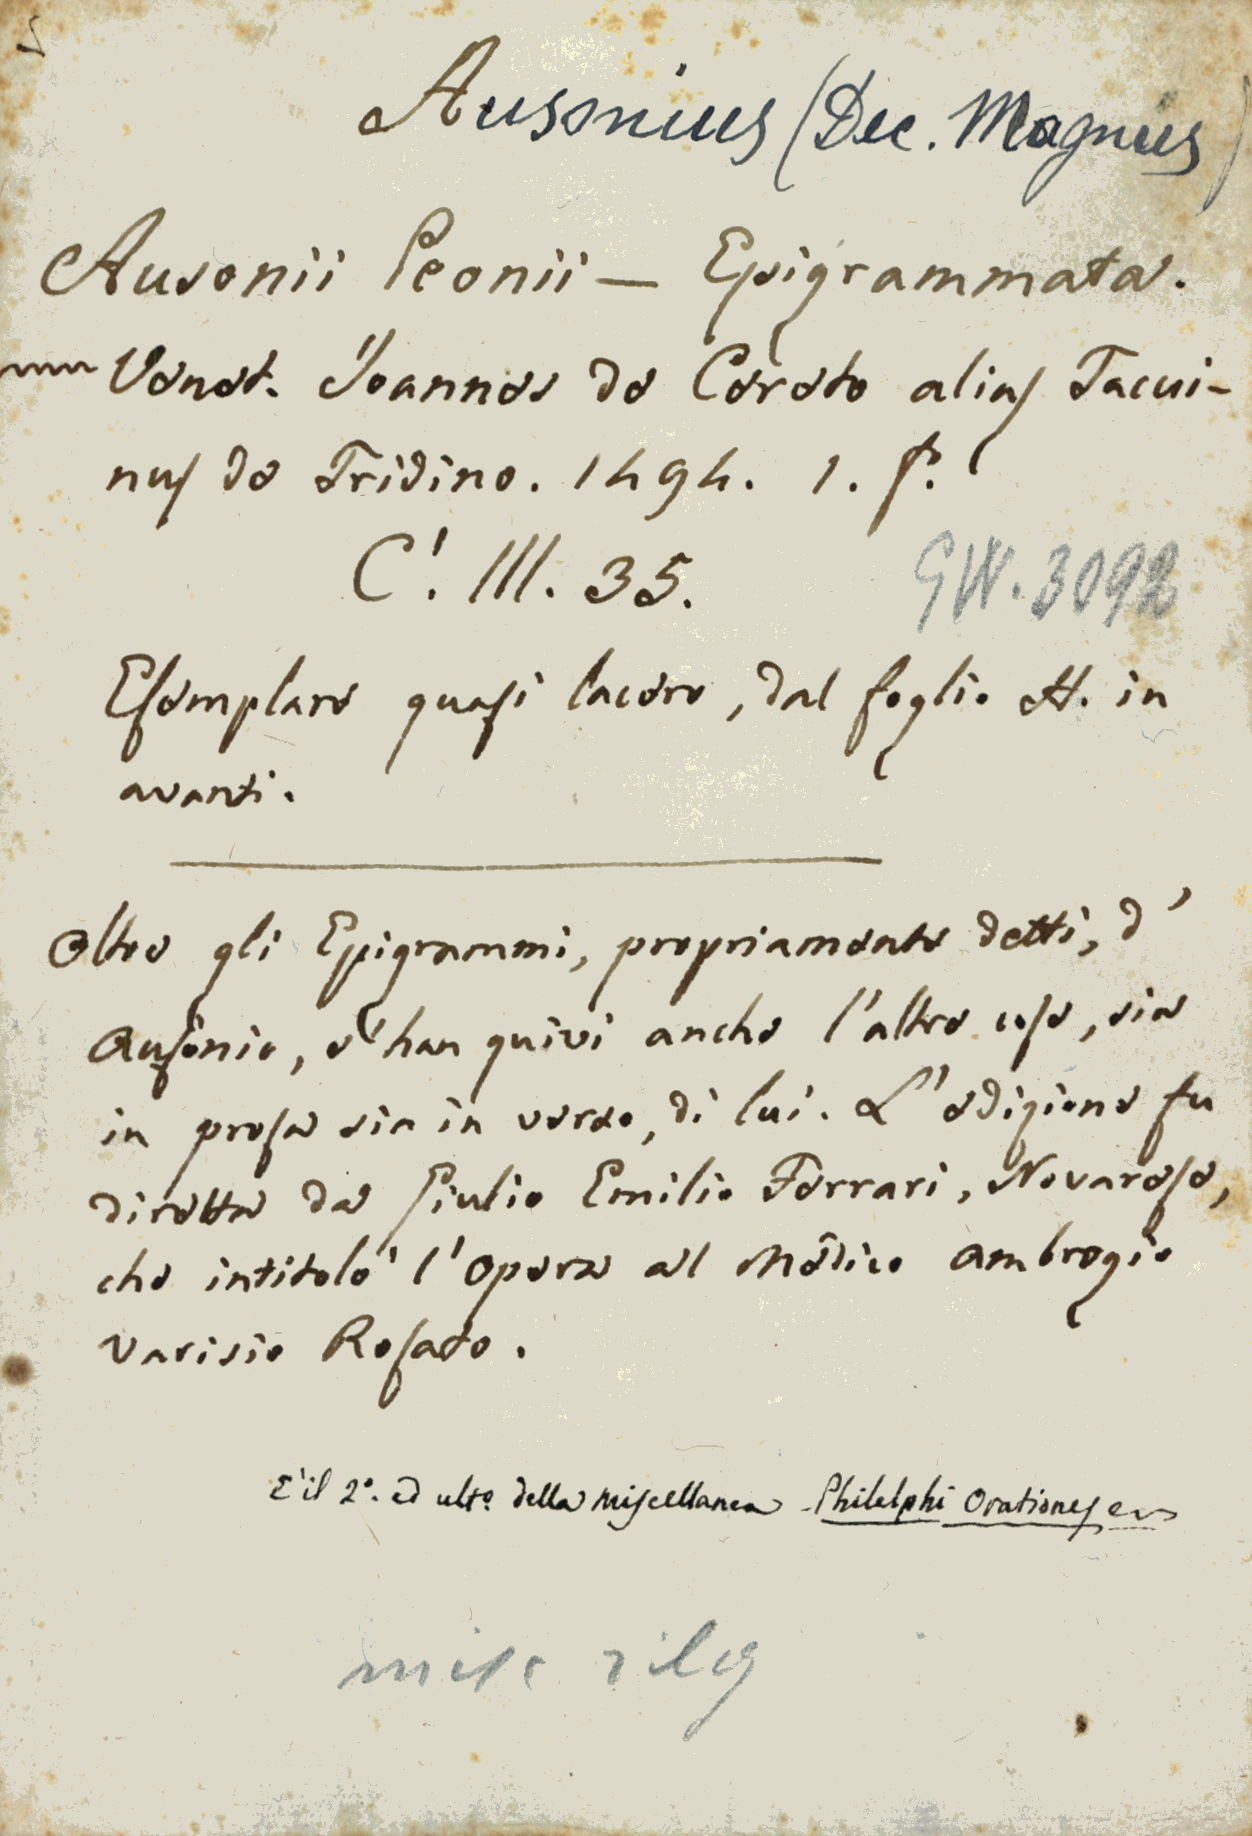 Ausonius (Dec. Magnus)
Ausonii Peonii — Epigrammata.
Venet. Joannes de Cereto alias Tacui-
nus de Tridino. 1494. 1. f.
C'. III. 35.
GW. 3092
Esemplare quasi lacero, dal foglio H. in
avanti.
Oltre gli Epigrammi, propriamente detti, d'
Ausonio, v'han quivi anche l'altre cose, sia
in prosa sia in verso, di lui. L'edizione fu
diretta da Giulio Emilio Ferrari, Novarese,
che intitolò l'Opera al Medico Ambrogio
Varisio Rosato.
E' il 2º. ed ultº della Miscellanea Philelphi Orationes
misc rileg